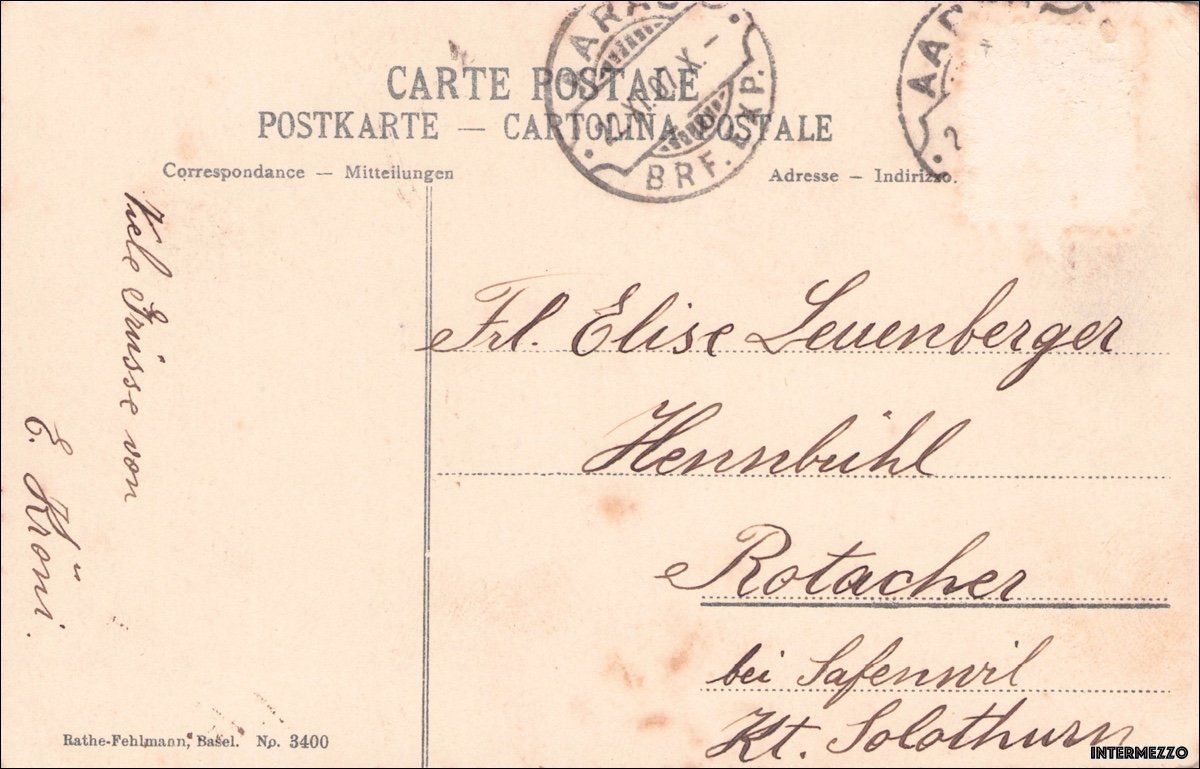 CARTE POSTALE
POSTKARTE — CARTOLINA POSTALE
Correspondance — Mitteilungen
Adresse — Indirizzo.
BRF. EXP.
Viele Grüsse von
E. Kröni.
Frl. Elise Leuenberger
Hennbühl
Rotacher
bei Safenwil
Kt. Solothurn
Rathe-Fehlmann, Basel. No. 3400
INTERMEZZO